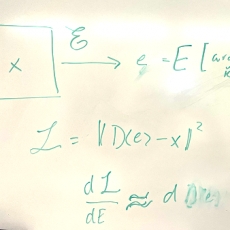 x ℰ → e = E [
ℒ = ||D(e) - x||²
dℒ/dE ≈ d